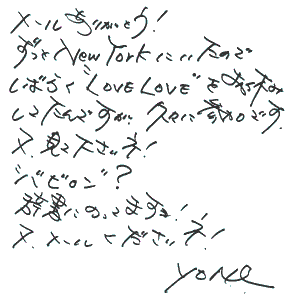 メールありがとう!
ずっとNew Yorkにいたので
しばらく"LOVE LOVE"をお休み
してたんですが、久々に復帰です。
又、見て下さいネ!
"バビロン"?
辞書にのってますョ!
又、メールくださいネ!
YONE